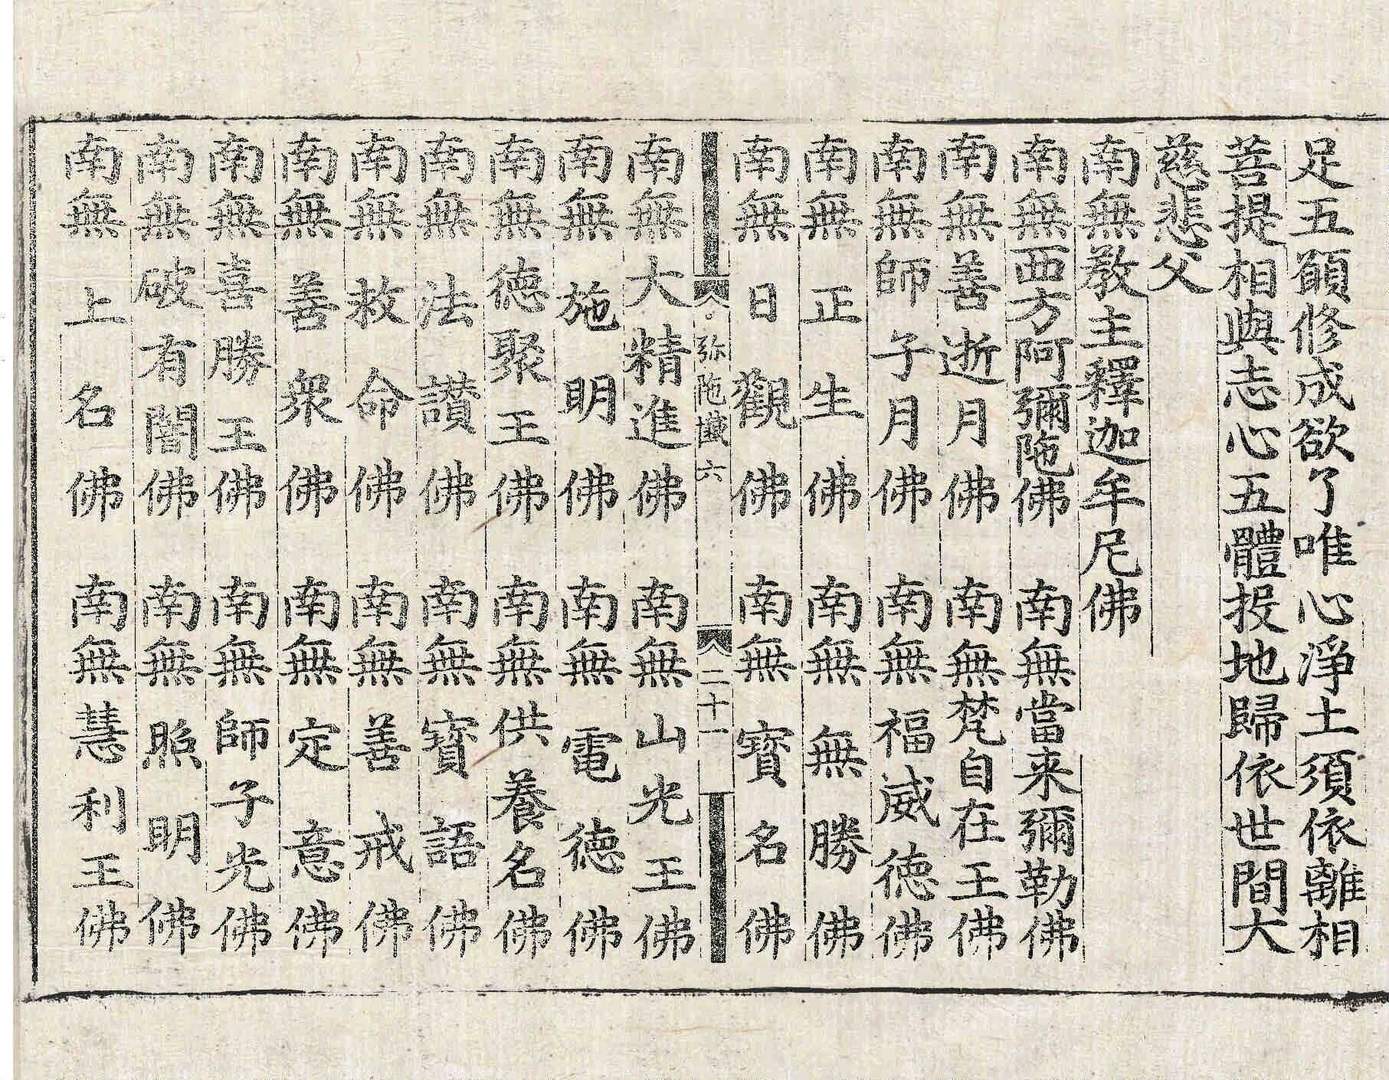 足五願修成欲了唯心淨土須依離相
菩提相與志心五體投地歸依世間大
慈悲父
南無教主釋迦牟尼佛
南無西方阿彌陁佛　南無當来彌勒佛
南無善逝月佛　南無梵自在王佛
南無師子月佛　南無福威德佛
南無正生佛　南無無勝佛
南無日觀佛　南無寶名佛
弥陁懺六　二十一
南無大精進佛　南無山光王佛
南無施明佛　南無電德佛
南無德聚王佛　南無供養名佛
南無法讃佛　南無寳語佛
南無救命佛　南無善戒佛
南無善衆佛　南無定意佛
南無喜勝王佛　南無師子光佛
南無破有闇佛　南無照明佛
南無上名佛　南無慧利王佛